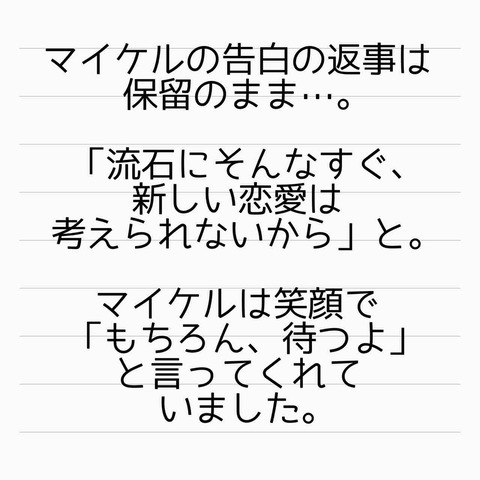 マイケルの告白の返事は
保留のまま…。
「流石にそんなすぐ、
新しい恋愛は
考えられないから」と。
マイケルは笑顔で
「もちろん、待つよ」
と言ってくれて
いました。